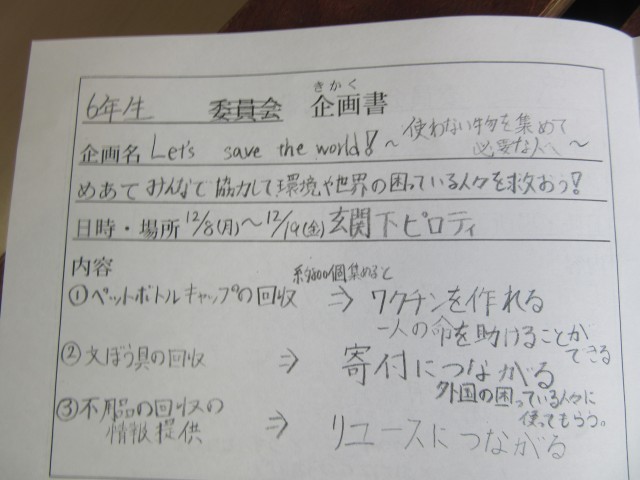 きかく
6年生 委員会 企画書
企画名 Let's save the world! ～使わない物を集めて
必要な人へ～
めあて みんなで協力して環境や世界の困っている人々を救おう!
日時・場所 12/8(月)～12/19(金) 玄関下ピロティ
内容
約800個集めると
①ペットボトルキャップの回収 ⇒ ワクチンを作れる
一人の命を助けることが
できる
②文ぼう具の回収 ⇒ 寄付につながる
外国の困っている人々に
使ってもらう。
③不用品の回収の
情報提供 ⇒ リユースにつながる